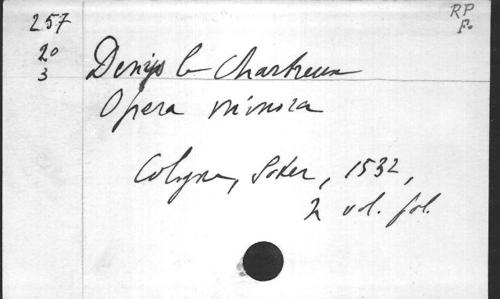 257
20
3
RP
fo
Denys le Chartreux
Opera minora
Cologne, Soter, 1532,
2 vol. fol.